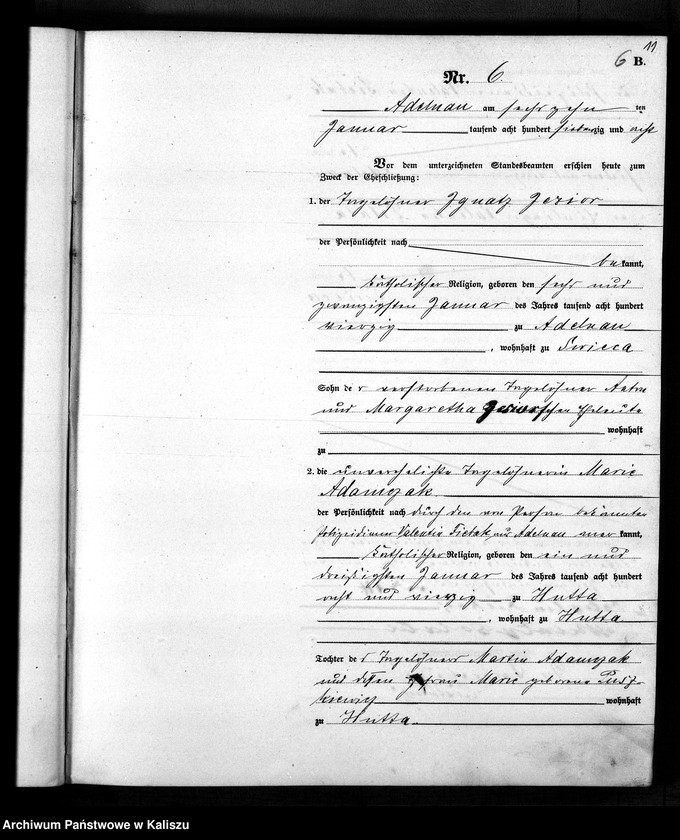 11
6 B.
Nr. 6.
Adelnau am sechszehn ten
Januar tausend acht hundert siebenzig und acht
Vor dem unterzeichneten Standesbeamten erschien heute zum
Zweck der Eheschließung:
1. der Tagelöhner Ignatz Jezior
der Persönlichkeit nach
be kannt,
katholischer Religion, geboren den sechs und
zwanzigsten Januar des Jahres tausend acht hundert
vierzig zu Adelnau
, wohnhaft zu
Sohn de r verstorbenen Tagelöhner
und Margaretha Jezior'schen Eheleute
wohnhaft
zu
2. die unverehelichte Tagelöhnerin Marie
Adamczak
der Persönlichkeit nach durch den von Person bekannten
Polizeidiener Valentin aus Adelnau aner kannt,
katholischer Religion, geboren den ein und
dreißigsten Januar des Jahres tausend acht hundert
acht und vierzig zu Hutta
, wohnhaft zu Hutta
Tochter de s Tagelöhners Martin Adamczak
und dessen Ehefrau Marie geborene
wohnhaft
zu Hutta.
Archiwum Państwowe w Kaliszu